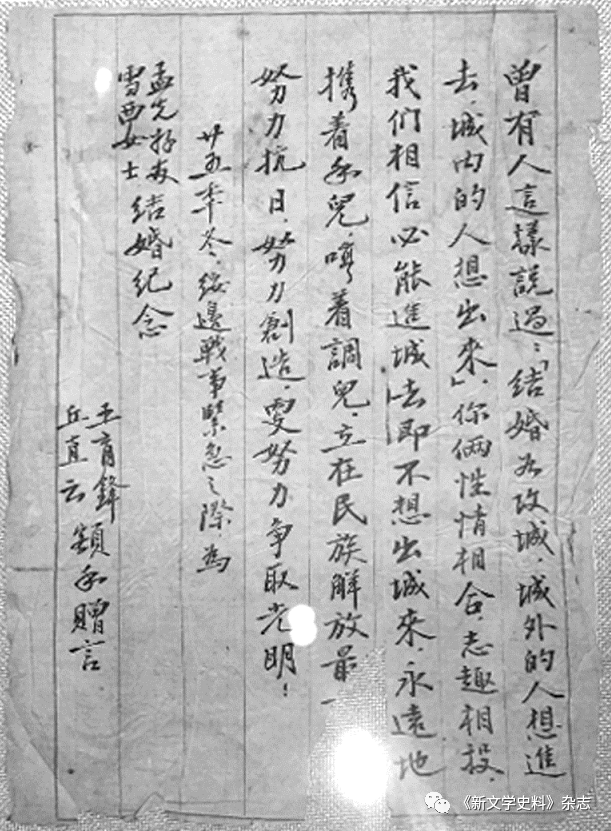 曾有人這樣說過：「結婚如攻城，城外的人想進
去，城內的人想出來」，你倆性情相合，志趣相投，
我们相信必能進城去即不想出城來，永遠地
携着手兒，哼着調兒，立在民族解放最
努力抗日，努力創造，更努力爭取光明！
廿五年冬，綏邊戰事緊急之際，為
孟先好友
雪西女士 結婚紀念
王育鋒
丘直云 額手贈言
《新文学史料》杂志